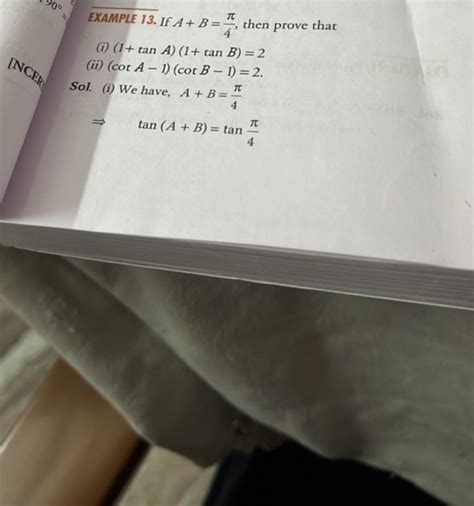 90°
EXAMPLE 13. If A + B = π/4, then prove that
(i) (1+ tan A) (1+ tan B) = 2
(ii) (cot A − 1) (cot B − 1) = 2.
[NCER
Sol. (i) We have, A + B = π/4
⇒ tan (A + B) = tan π/4